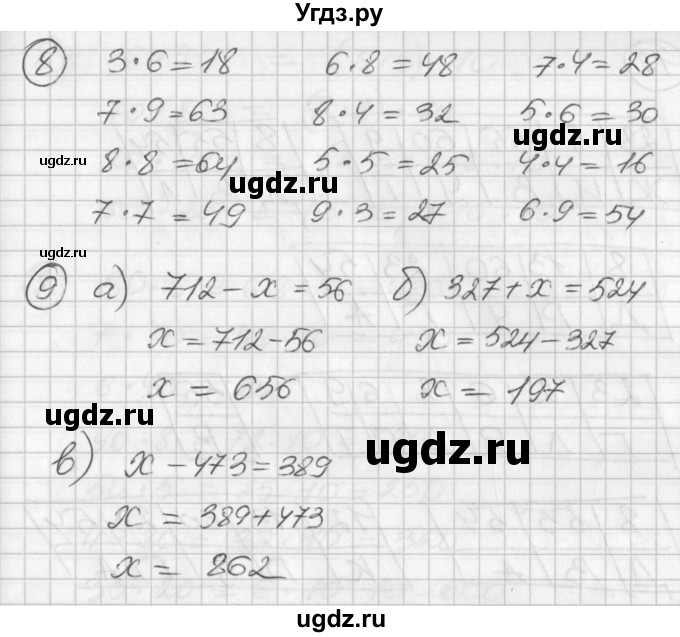 Угдз.ру
8 3·6=18 6·8=48 7·4=28
7·9=63 8·4=32 5·6=30
ugdz.ru
ugdz.ru 8·8=64 5·5=25 4·4=16
ugdz.ru
7·7=49 9·3=27 6·9=54
ugdz.ru
9 а) 712-x=56 б) 327+x=524
x=712-56 x=524-327
x=656 x=197
ugdz.ru
ugdz.ru
в) x-473=389
x=389+473
x=862
ugdz.ru ugdz.ru